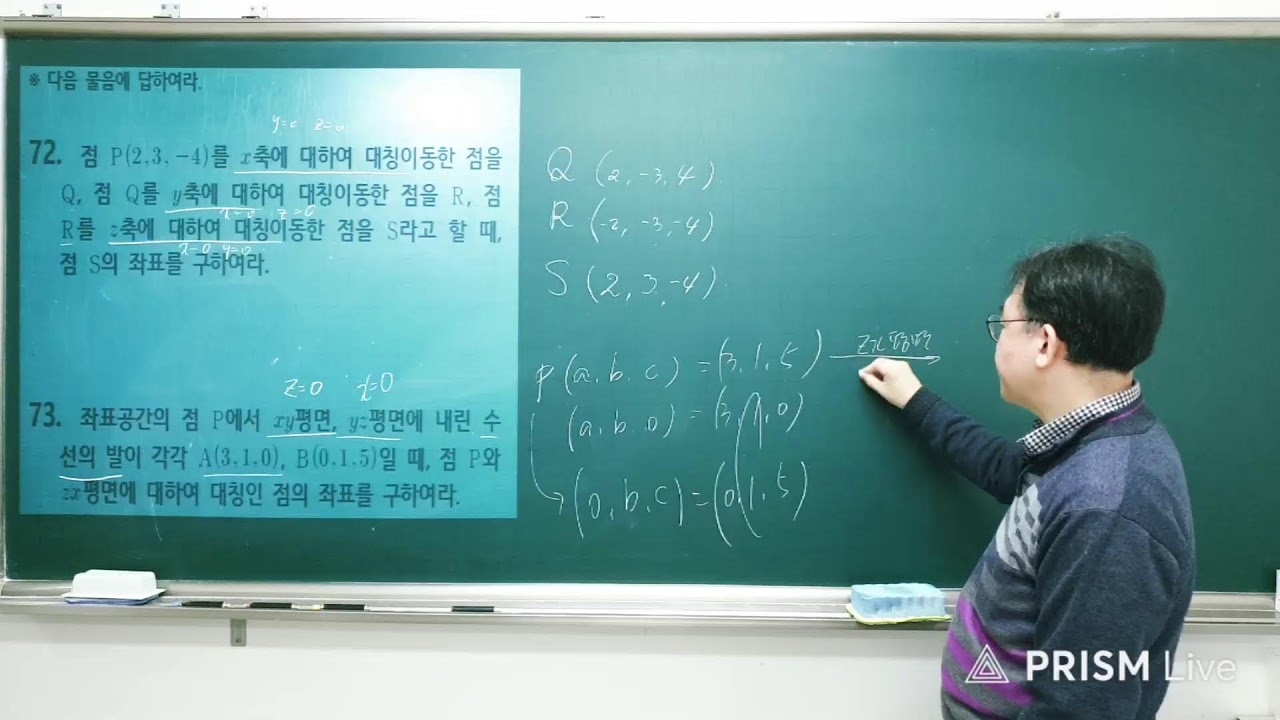 ※ 다음 물음에 답하여라.
y=0 z=0
72. 점 P(2,3,-4)를 x축에 대하여 대칭이동한 점을
Q, 점 Q를 y축에 대하여 대칭이동한 점을 R, 점
x=0 z=0
R를 z축에 대하여 대칭이동한 점을 S라고 할 때,
x=0 y=0
점 S의 좌표를 구하여라.
z=0 x=0
73. 좌표공간의 점 P에서 xy평면, yz평면에 내린 수
선의 발이 각각 A(3,1,0), B(0,1,5)일 때, 점 P와
zx평면에 대하여 대칭인 점의 좌표를 구하여라.
Q (2, -3, 4)
R (-2, -3, -4)
S (2, 3, -4)
P (a, b, c) = (3, 1, 5) zx평면
(a, b, 0) = (3, 1, 0)
(0, b, c) = (0, 1, 5)
PRISM Live